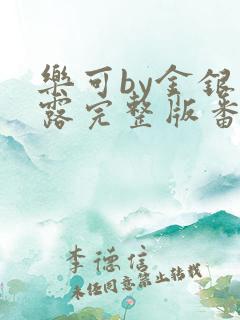 樂可by金銀
露完整版番
李德信
未经同意禁止转载